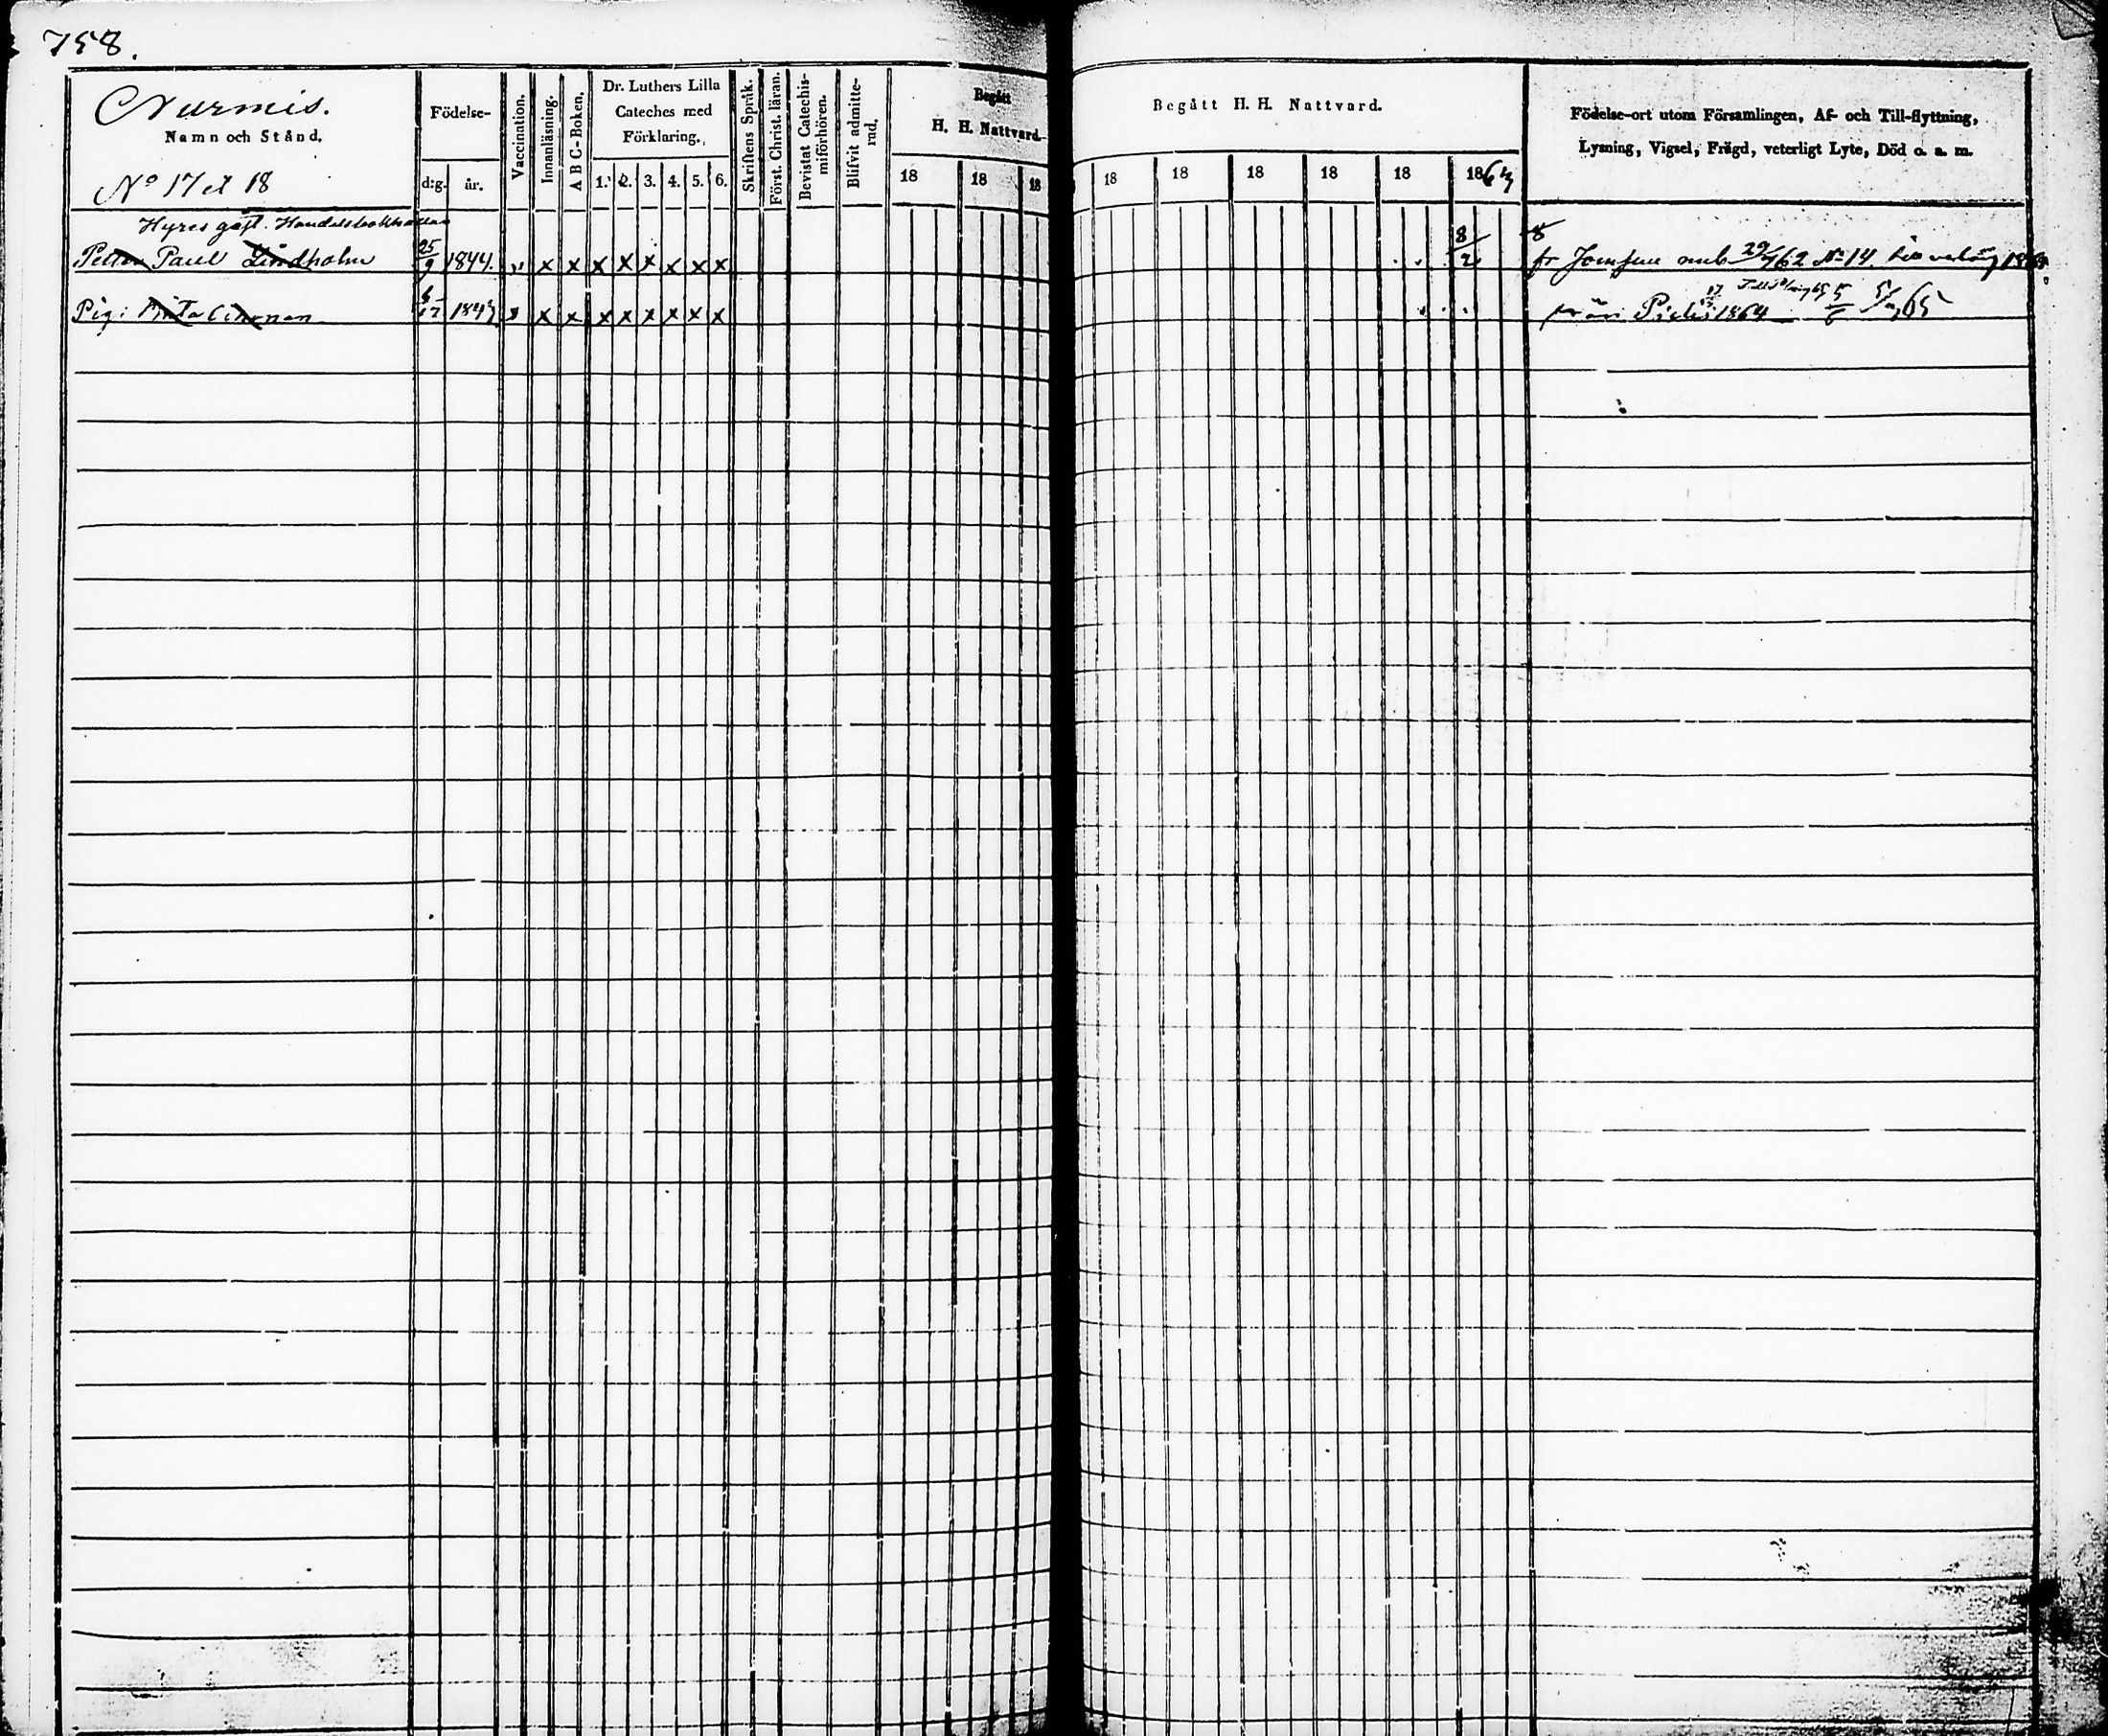 758.
Nurmis.
Namn och Stånd.
No 17 et 18
Födelse-
d:g. år.
Vaccination.
Innanläsning.
A B C-Boken.
Dr. Luthers Lilla
Cateches med
Förklaring.
1. 2. 3. 4. 5. 6.
Skriftens Språk.
Först. Christ. läran.
Bevistat Catechis-
miförhören.
Blifvit admitte-
rad.
Begått
H. H. Nattvard.
18 18 18
Begått H. H. Nattvard.
18 18 18 18 18 1863
Födelse-ort utom Församlingen, Af- och Till-flyttning,
Lysning, Vigsel, Frägd, veterligt Lyte, Död o. a. m.
Hyres gäst. Handelsbokhållar
Petter Paul Lindholm 25/9 1844. " x x x x x x x x 8/2 8 fr 29/ 62 No 14.
Pig: 1843 x x x x x x x x från 1864 5/6 65